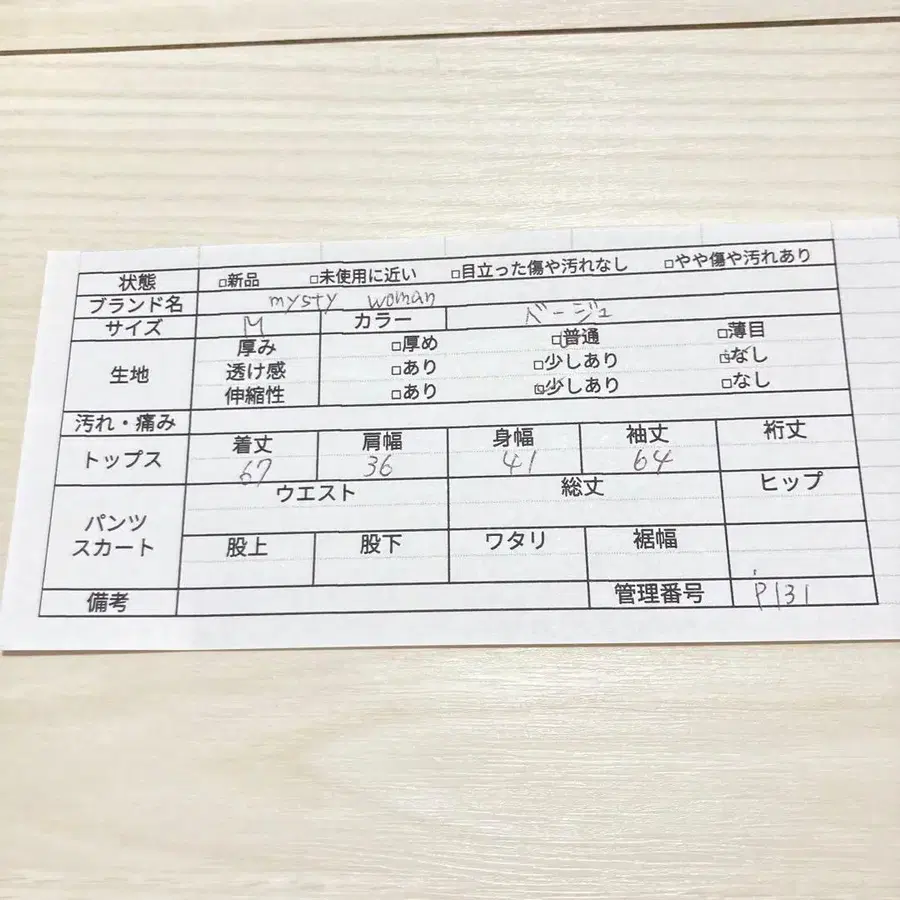 状態 □新品 □未使用に近い □目立った傷や汚れなし □やや傷や汚れあり
ブランド名 mysty woman
サイズ M カラー ベージュ
生地 厚み □厚め □普通 □薄目
透け感 □あり □少しあり □なし
伸縮性 □あり □少しあり □なし
汚れ・痛み
トップス 着丈 肩幅 身幅 袖丈 裄丈
67 36 41 64
パンツ スカート ウエスト 総丈 ヒップ
股上 股下 ワタリ 裾幅
備考 管理番号 P131